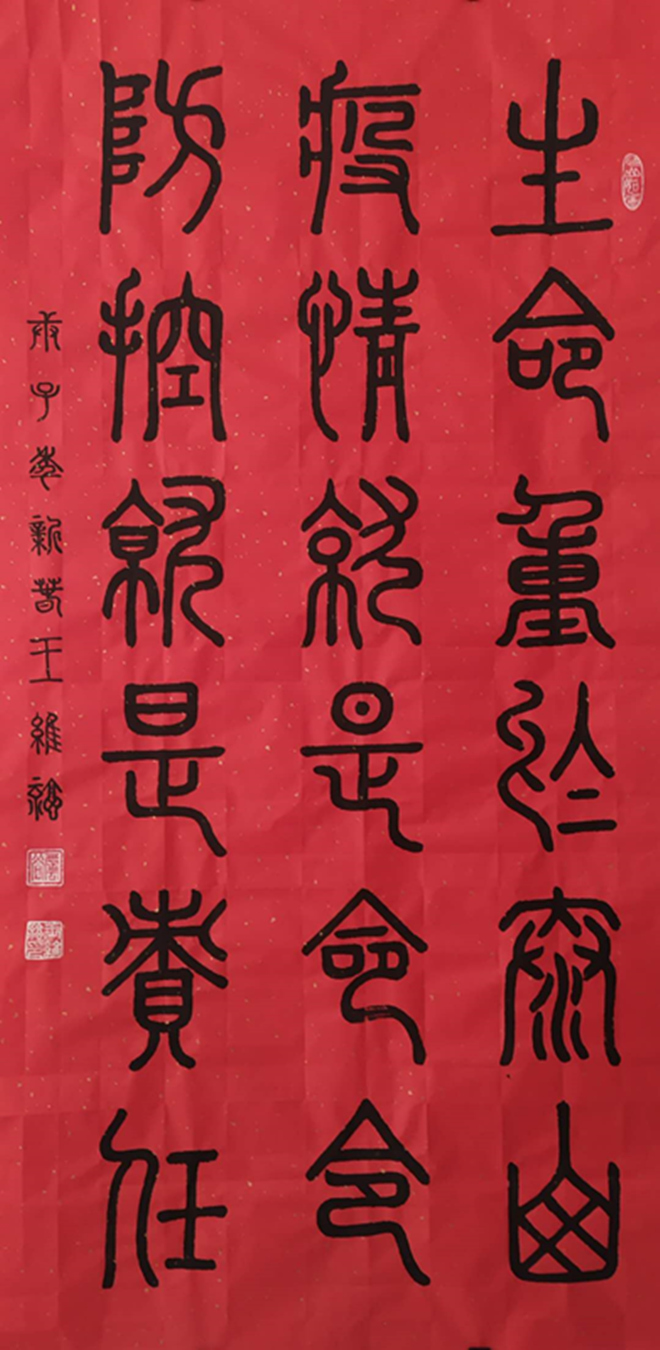 生命重於泰山
疫情就是命令
防控就是責任
庚子年新春王維